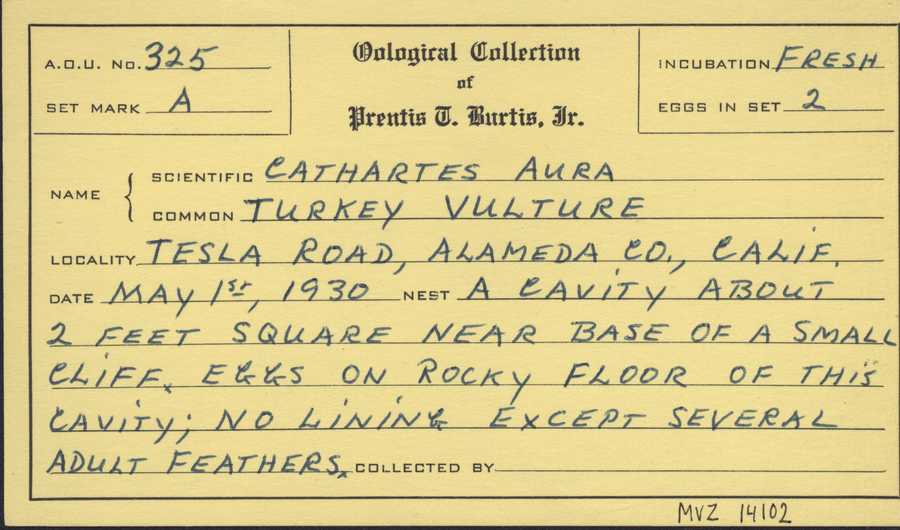 A.O.U. NO. 325
SET MARK A
Oological Collection
of
Prentis T. Burtis, Jr.
INCUBATION FRESH
EGGS IN SET 2
NAME
SCIENTIFIC CATHARTES AURA
COMMON TURKEY VULTURE
LOCALITY TESLA ROAD, ALAMEDA CO., CALIF.
DATE MAY 1ST, 1930 NEST A CAVITY ABOUT
2 FEET SQUARE NEAR BASE OF A SMALL
CLIFF. EGGS ON ROCKY FLOOR OF THIS
CAVITY; NO LINING EXCEPT SEVERAL
ADULT FEATHERS. COLLECTED BY
MVZ 14102